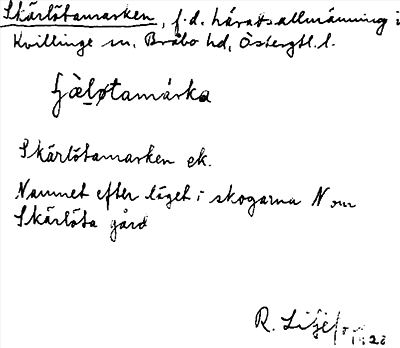 Skärlötamarken, f.d. häradsallmänning i
Kvillinge sn, Bråbo hd, Östergtl. l.
Skärlötamarken ek.
Namnet efter läget i skogarna N om
Skärlöta gård
R.